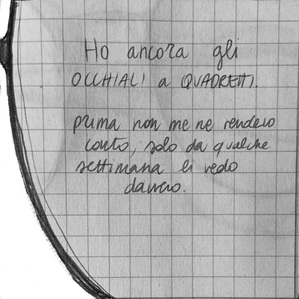 Ho ancora gli
OCCHIALI a QUADRETTI.
prima non me ne rendevo
conto, solo da qualche
settimana li vedo
davvero.